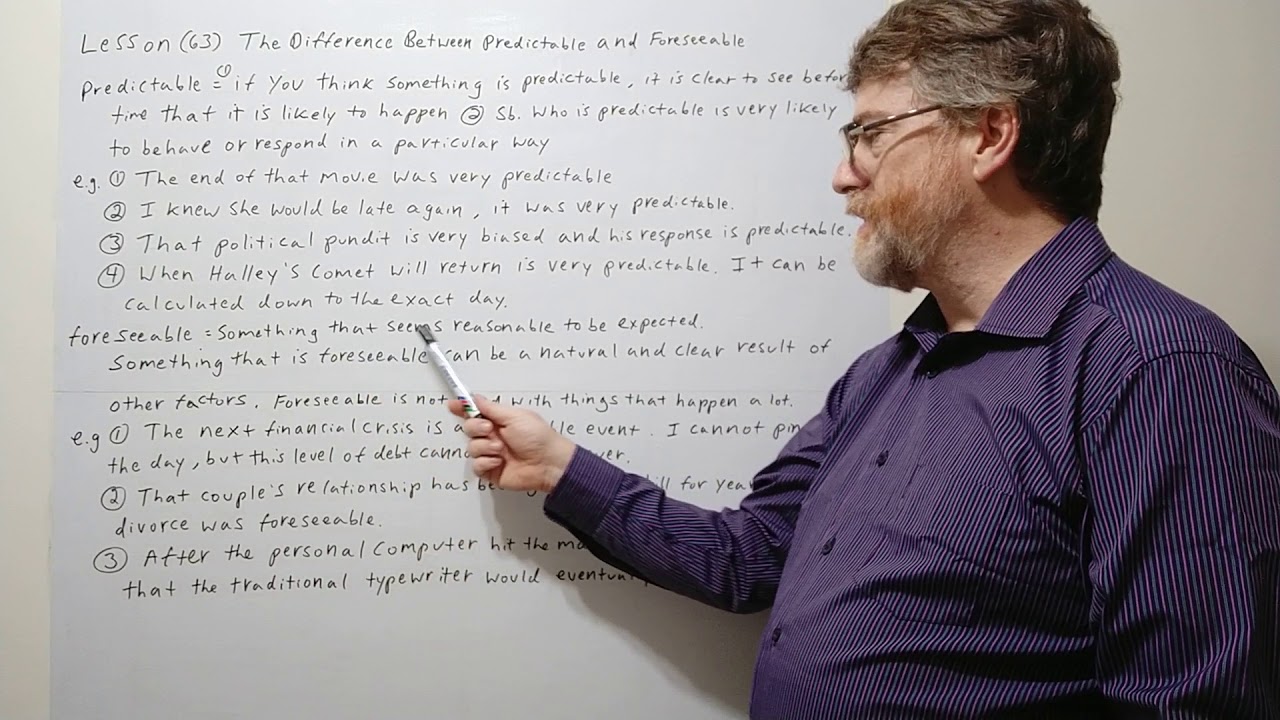 Lesson (63) The Difference Between Predictable and Foreseeable
Predictable = ① if you think something is predictable, it is clear to see before
time that it is likely to happen ② Sb. who is predictable is very likely
to behave or respond in a particular way
e.g. ① The end of that movie was very predictable
② I knew she would be late again, it was very predictable.
③ That political pundit is very biased and his response is predictable.
④ When Halley's Comet will return is very predictable. It can be
calculated down to the exact day.
foreseeable = Something that seems reasonable to be expected.
Something that is foreseeable can be a natural and clear result of
other factors. Foreseeable is not with things that happen a lot.
e.g ① The next financial crisis is a event. I cannot
the day, but this level of debt
② That couple's relationship has for
divorce was foreseeable.
③ After the personal computer hit the
that the traditional typewriter would